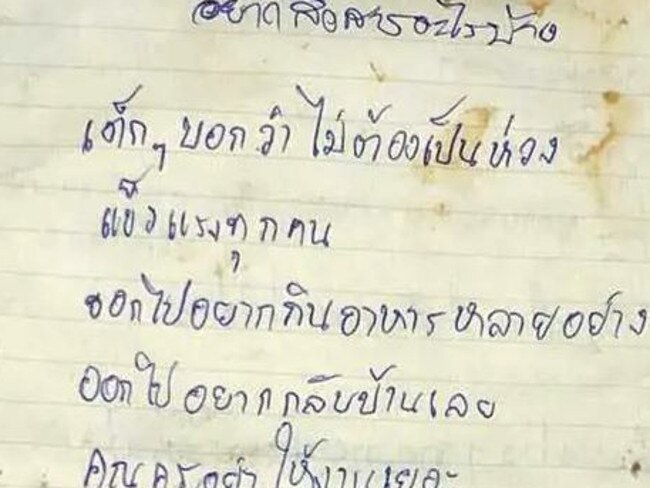 อยากสื่อสารอะไรบ้าง
เด็กๆ บอกว่า ไม่ต้องเป็นห่วง
แข็งแรงทุกคน
ออกไปอยากกินอาหารหลายอย่าง
ออกไป อยากกลับบ้านเลย
คุณครูอย่า ให้งานเยอะ